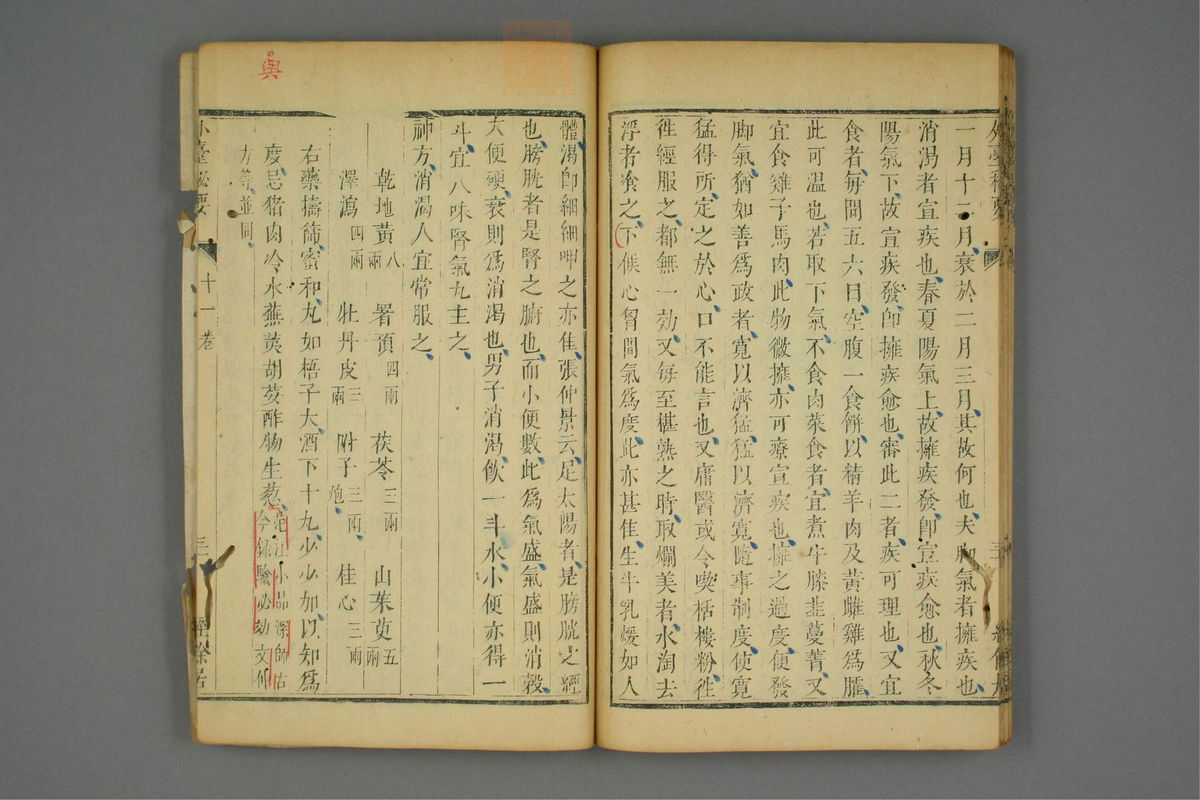 一月十二月衰於二月三月其故何也夫脚氣者擁疾也
消渴者宣疾也春夏陽氣上故擁疾發卽宣疾愈也秋冬
陽氣下故宣疾發卽擁疾愈也審此二者疾可理也又宜
食者每間五六日空腹一食餅以精羊肉及黃雌雞爲臛
此可温也若取下氣不食肉菜食者宜煮牛膝韭蔓菁又
宜食雞子馬肉此物微擁亦可療宣疾也擁之過度便發
脚氣猶如善爲政者寛以濟猛猛以濟寛隨事制度使寛
猛得所定之於心口不能言也又庸醫或令喫栝樓粉徃
徃經服之都無一効又每至椹熟之時取爛美者水淘去
浮者飡之下候心胷間氣爲度此亦甚佳生牛乳煖如人
體渴卽細細呷之亦佳張仲景云足太陽者是膀胱之經
也膀胱者是腎之腑也而小便數此爲氣盛氣盛則消穀
大便䩕衰則爲消渴也男子消渴飲一斗水小便亦得一
斗宜八味腎氣丸主之
神方消渴人宜常服之
乾地黃八兩 署預四兩 茯苓三兩 山茱萸五兩
澤瀉四兩 牡丹皮三兩 附子三兩炮 桂心三兩
右藥擣篩蜜和丸如梧子大酒下十丸少少加以知爲
度忌猪肉冷水蕪荑胡荽酢物生葱范汪小品深師古今錄驗必効文仲
方等並同
外臺祕要 十一卷 三 經餘居
與